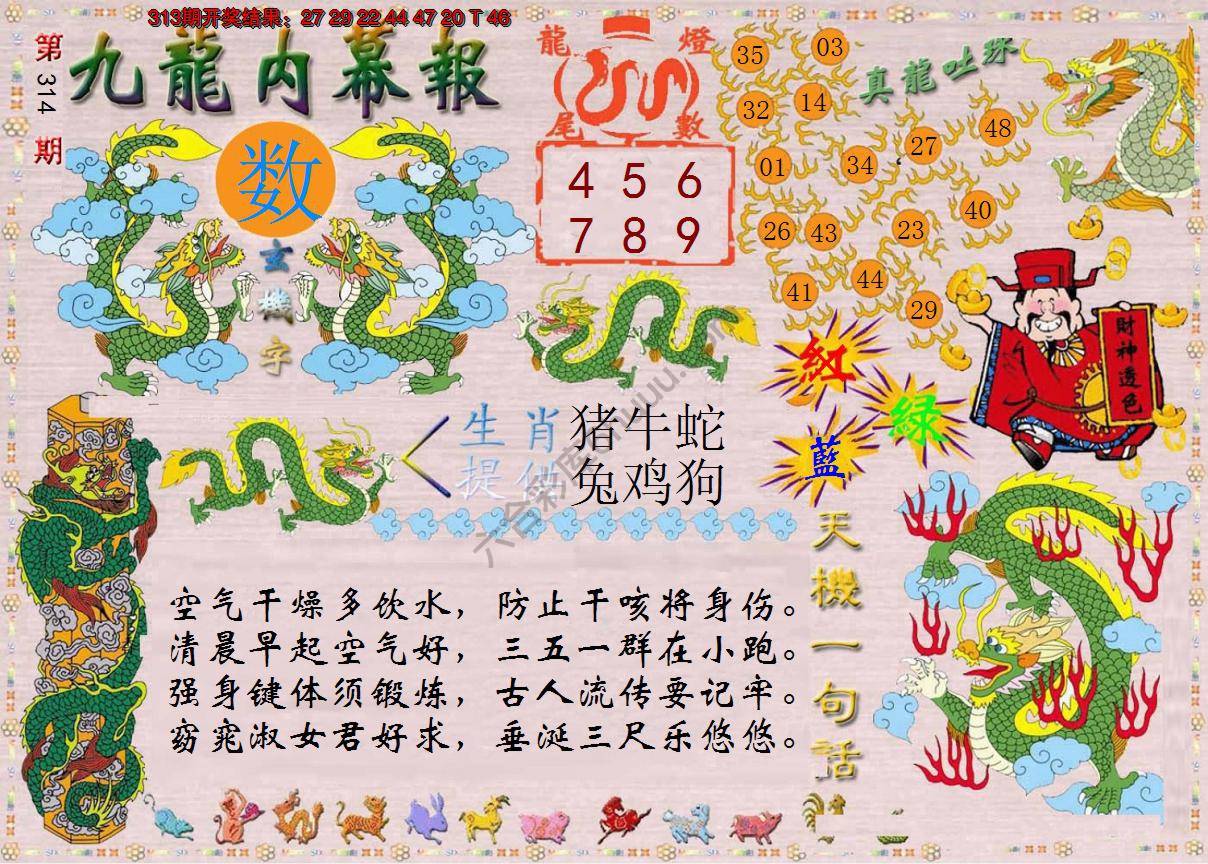 313期开奖结果：27 29 22 44 47 20 T 46
第314期
九龍内幕報
数
玄機字
龍燈尾數
4 5 6
7 8 9
真龍吐珠
35 03
32 14
01 34 27 48
26 43 23 40
41 44 29
財神透色
紅
綠
藍
生肖 猪牛蛇
提供 兔鸡狗
天機一句話
空气干燥多饮水，防止干咳将身伤。
清晨早起空气好，三五一群在小跑。
强身键体须锻炼，古人流传要记牢。
窈窕淑女君好求，垂涎三尺乐悠悠。